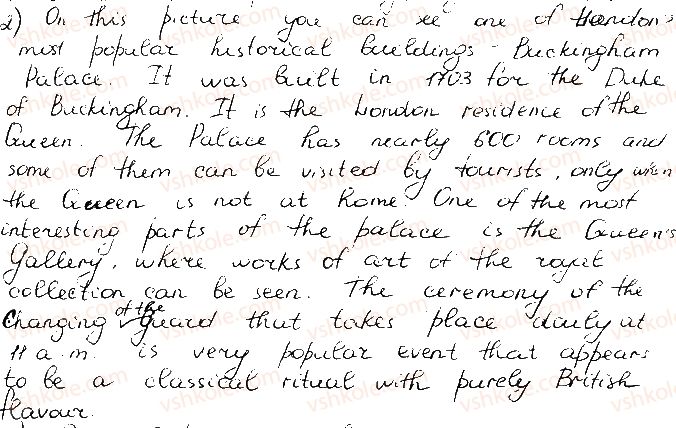 2) On this picture you can see one of London's
most popular historical buildings - Buckingham
Palace. It was built in 1703 for the Duke
of Buckingham. It is the London residence of the
Queen. The Palace has nearly 600 rooms and
some of them can be visited by tourists, only when
the Queen is not at home. One of the most
interesting parts of the palace is the Queen's
Gallery, where works of art of the royal
collection can be seen. The ceremony of the
changing of the guard that takes place daily at
11 a.m. is very popular event that appears
to be a classical ritual with purely British
flavour.